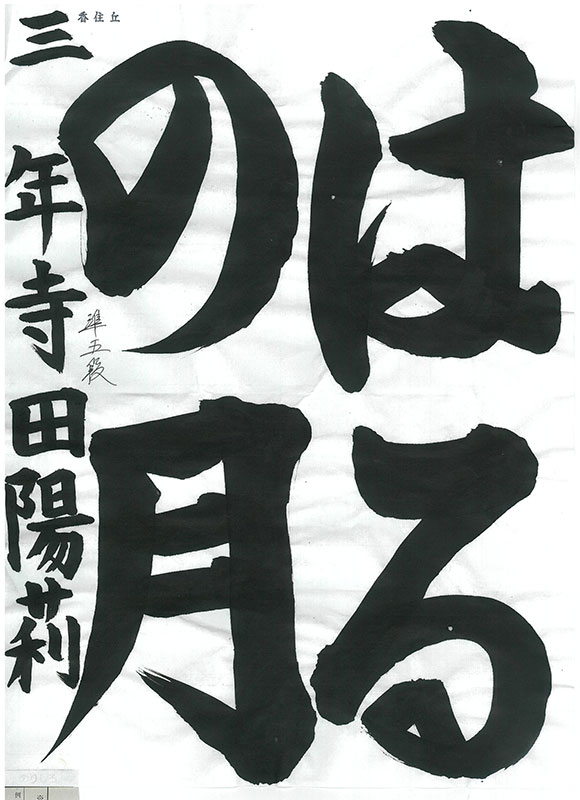 はる
の月
三年寺田陽莉
準五段
香住丘